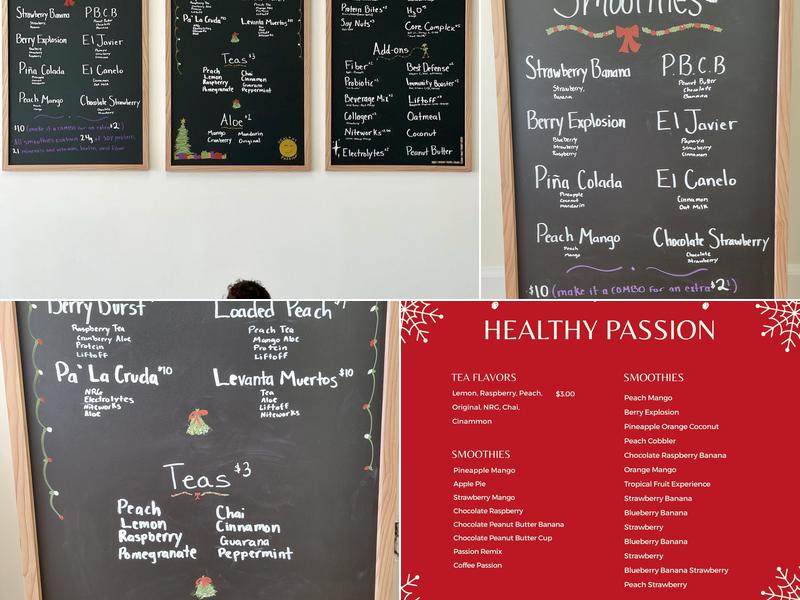 Strawberry Banana
P.B.C.B
Berry Explosion
El Javier
Piña Colada
El Canelo
Peach Mango
Chocolate Strawberry
$10 (make it a COMBO for an extra $2!)
All smoothies contain 24g of soy protein,
21 minerals and vitamins, biotin, and fiber
Pa' La Cruda $10
Levanta Muertos $10
Teas $3
Peach
Lemon
Raspberry
Pomegranate
Chai
Cinnamon
Guarana
Peppermint
Aloe $1
Mango
Cranberry
Mandarin
Original
Protein Bites
H₂O
Soy Nuts
Core Complex
Add-ons
Fiber
Best Defense
Probiotic
Immunity Booster
Beverage Mix
Liftoff
Collagen
Oatmeal
Niteworks
Coconut
Electrolytes
Peanut Butter
Smoothies
Strawberry Banana
Strawberry,
Banana
P.B.C.B
Peanut Butter
Chocolate
Banana
Berry Explosion
Blueberry
Strawberry
Raspberry
El Javier
Papaya
Strawberry
Cinnamon
Piña Colada
Pineapple
Coconut
Mandarin
El Canelo
Cinnamon
Oat Milk
Peach Mango
Peach
Mango
Chocolate Strawberry
Chocolate
Strawberry
$10 (make it a COMBO for an extra $2!)
Berry Burst
Raspberry Tea
Cranberry Aloe
Protein
Liftoff
Loaded Peach
Peach Tea
Mango Aloe
Protein
Liftoff
Pa' La Cruda $10
NRG
Electrolytes
Niteworks
Aloe
Levanta Muertos $10
Tea
Aloe
Liftoff
Niteworks
Teas $3
Peach
Lemon
Raspberry
Pomegranate
Chai
Cinnamon
Guarana
Peppermint
HEALTHY PASSION
TEA FLAVORS
Lemon, Raspberry, Peach, $3.00
Original, NRG, Chai,
Cinammon
SMOOTHIES
Pineapple Mango
Apple Pie
Strawberry Mango
Chocolate Raspberry
Chocolate Peanut Butter Banana
Chocolate Peanut Butter Cup
Passion Remix
Coffee Passion
SMOOTHIES
Peach Mango
Berry Explosion
Pineapple Orange Coconut
Peach Cobbler
Chocolate Raspberry Banana
Orange Mango
Tropical Fruit Experience
Strawberry Banana
Blueberry Banana
Strawberry
Blueberry Banana
Strawberry
Blueberry Banana Strawberry
Peach Strawberry